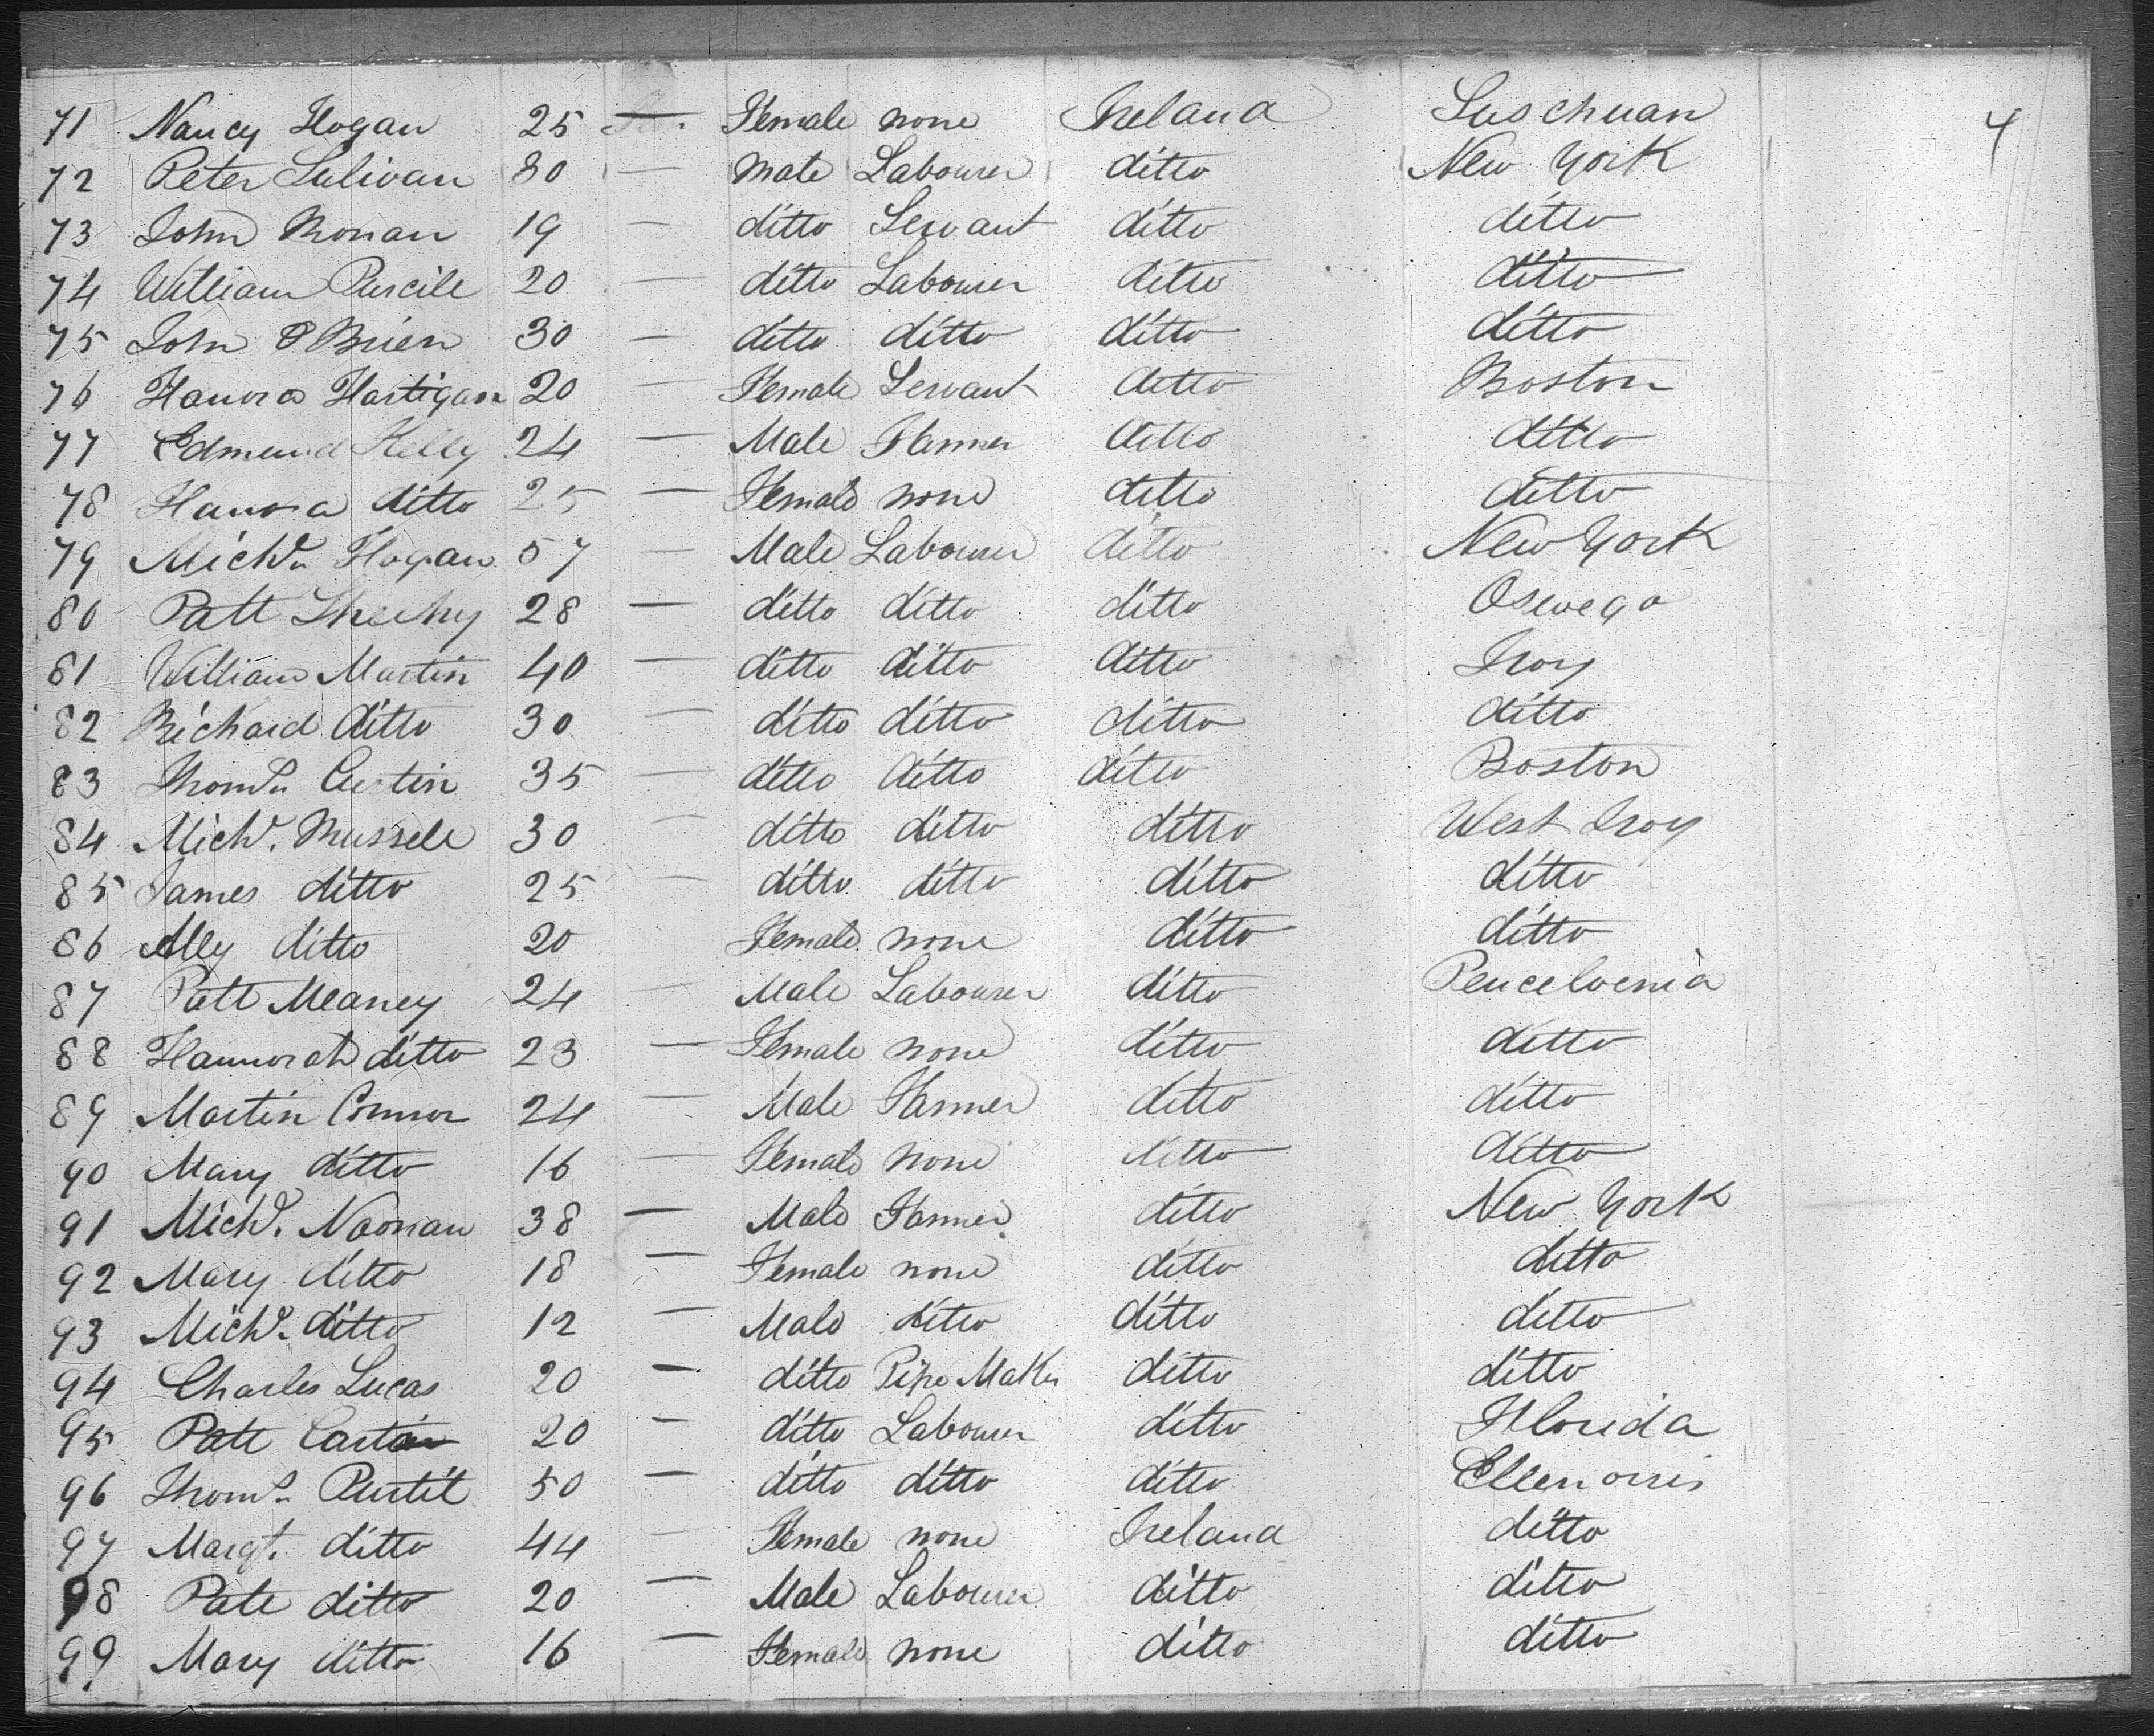 71 Nancy Hogan 25 — Female none Ireland Suschuan 4
72 Peter Sulivan 30 — Male Labourer ditto New York
73 John Ronan 19 — ditto Servant ditto ditto
74 William Purcile 20 — ditto Labourer ditto ditto
75 John O Brien 30 — ditto ditto ditto ditto
76 Hanora Hartigan 20 — Female Servant ditto Boston
77 Edmund Kelly 24 — Male Farmer ditto ditto
78 Hanora ditto 25 — Female none ditto ditto
79 Michl. Hogan 57 — Male Labourer ditto New York
80 Patt Sheehy 28 — ditto ditto ditto Oswego
81 William Martin 40 — ditto ditto ditto Troy
82 Richard ditto 30 — ditto ditto ditto ditto
83 Thoms. Curtin 35 — ditto ditto ditto Boston
84 Michl. Russele 30 — ditto ditto ditto West Troy
85 James ditto 25 — ditto ditto ditto ditto
86 Ally ditto 20 Female none ditto ditto
87 Patt Meaney 24 — Male Labourer ditto Pencelvenia
88 Hannorah ditto 23 — Female none ditto ditto
89 Martin Connor 24 — Male Farmer ditto ditto
90 Mary ditto 16 — Female none ditto ditto
91 Michl. Noonan 38 — Male Farmer ditto New York
92 Mary ditto 18 — Female none ditto ditto
93 Michl. ditto 12 — Male ditto ditto ditto
94 Charles Lucas 20 — ditto Pipe Maker ditto ditto
95 Patt 20 — ditto Labourer ditto Florida
96 Thoms. Purtil 50 — ditto ditto ditto Ellenorris
97 Margt. ditto 44 — Female none Ireland ditto
98 Patt ditto 20 — Male Labourer ditto ditto
99 Mary ditto 16 — Female none ditto ditto